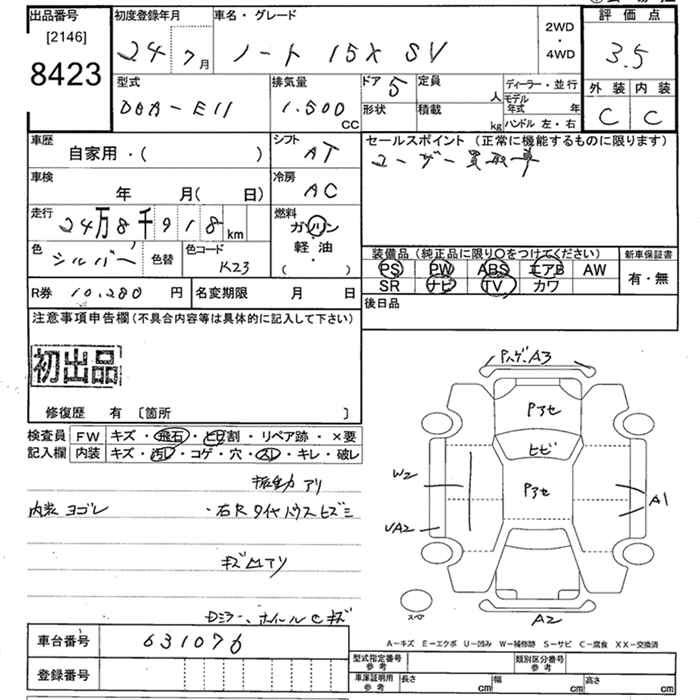 出品番号 初度登録年月 車名・グレード 評価点
[2146] 24 7月 ノート 15X SV 2WD・4WD 3.5
8423
型式 排気量 ドア 5 定員 人 ディーラー・並行 外装 内装
DBA-E11 1.500 CC 形状 積載 kg モデル年式 年 C C
ハンドル 左・右
車歴 シフト セールスポイント (正常に機能するものに限ります)
自家用・( ) AT ユーザー買取車
車検 冷房
年 月( 日) AC
走行 燃料
24万8千918km ガソリン
色 シルバー 色替 色コード K23 軽・油
( )
装備品 (純正品に限り○をつけてください) 新車保証書
PS PW ABS エアB AW 有・無
SR ナビ TV カワ
R券 10,280円 名変期限 月 日 後日品
注意事項申告欄(不具合内容等は具体的に記入して下さい)
初出品
修復歴 有 〔箇所 〕
検査員 FW キズ・飛石・ヒビ割・リペア跡・×要
記入欄 内装 キズ・汚レ・コゲ・穴・スレ・キレ・破レ
振動アリ
内装ヨゴレ ・右Rタイヤハウスヒズミ
キズ凹アリ
Dミラー、ホイールCキズ
Rハゲ A3
Pアセ
ヒビ
W2 Pアセ A1
UA2
スペア A2
車台番号 631076
A-キズ E-エクボ U-凹み W-補修跡 S-サビ C-腐食 XX-交換済
登録番号 型式指定番号 参考 類別区分番号 参考
車庫証明用 参考 長さ cm 幅 cm 高さ cm